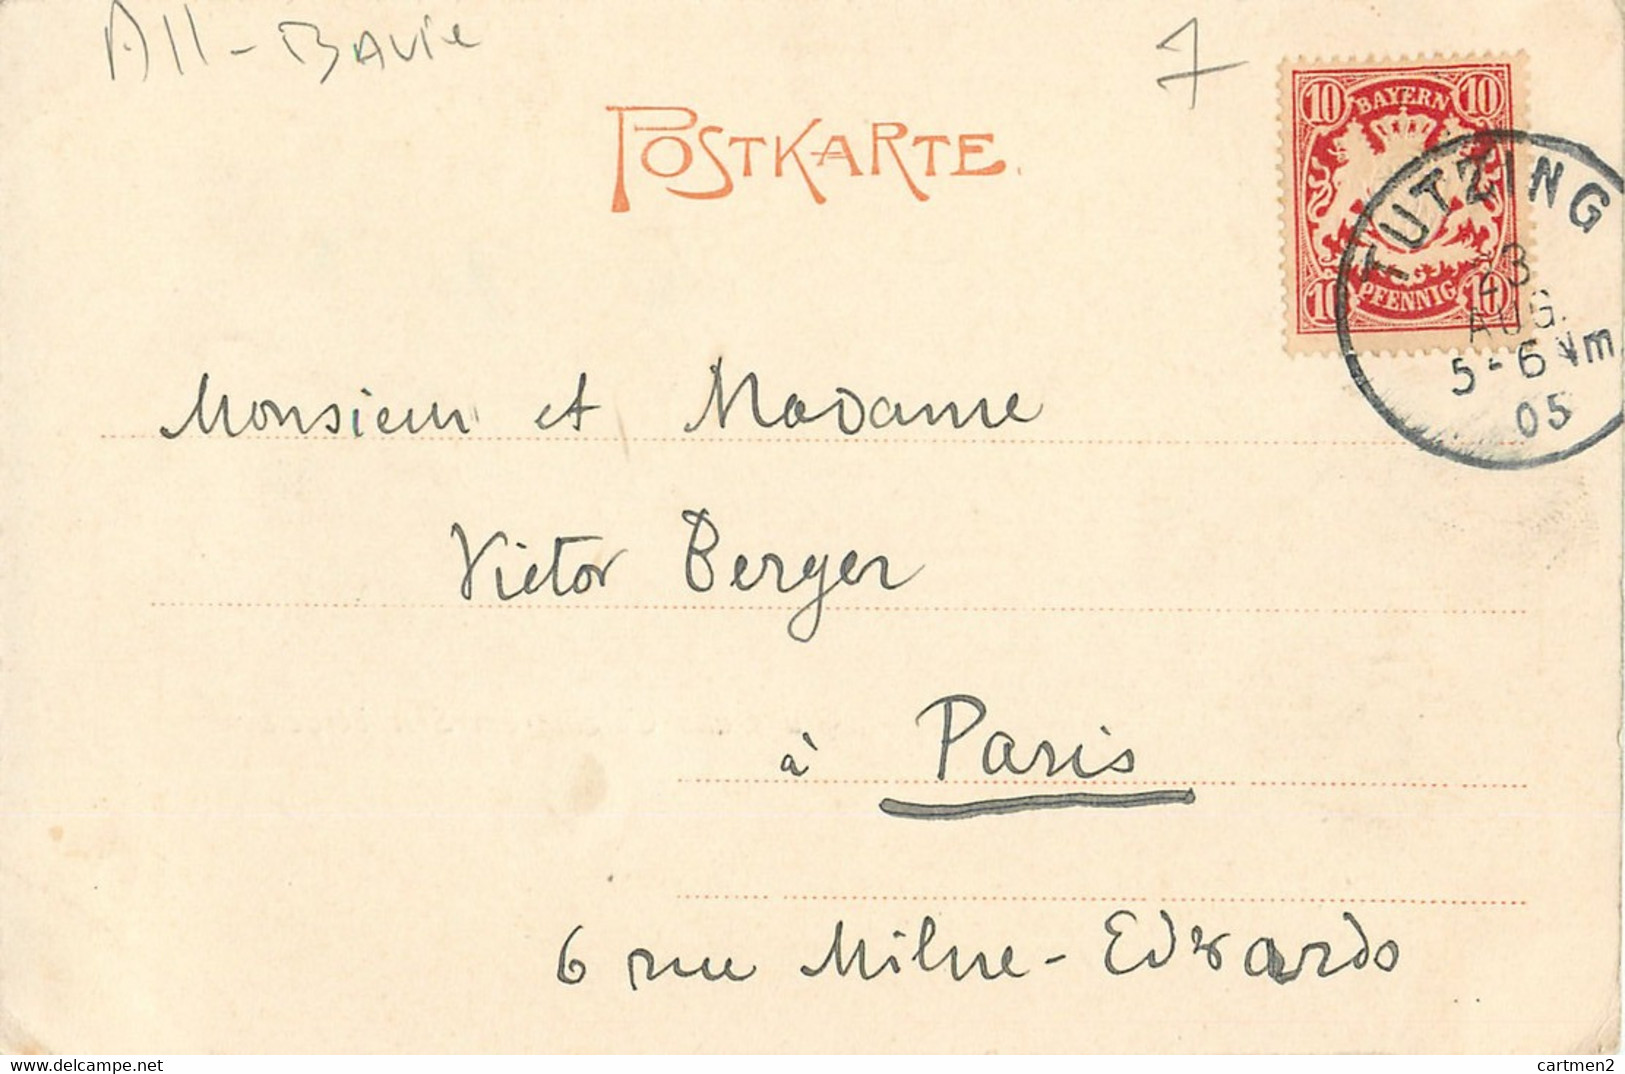 All - Bavie
7
POSTKARTE.
10 BAYERN 10
10 PFENNIG 10
TUTZING
23
AUG.
5-6 Nm
05
Monsieur et Madame
Victor Berger
à Paris
6 rue Milne-Edwards
cartmen2